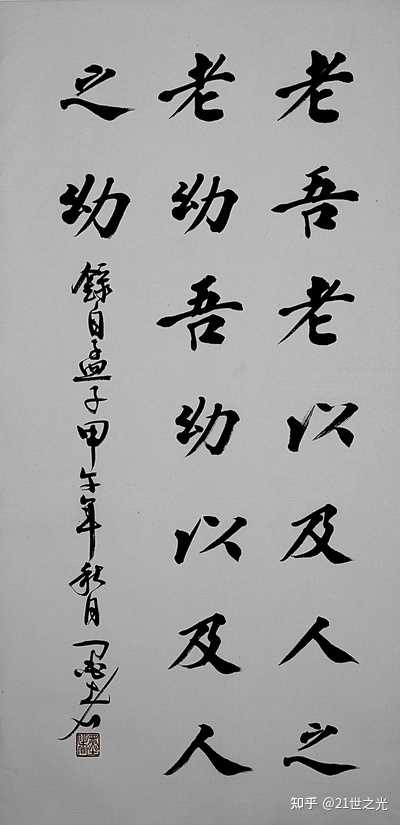 老吾老以及人之
老幼吾幼以及人
之幼
錄自孟子甲午年秋月
知乎 @21世之光